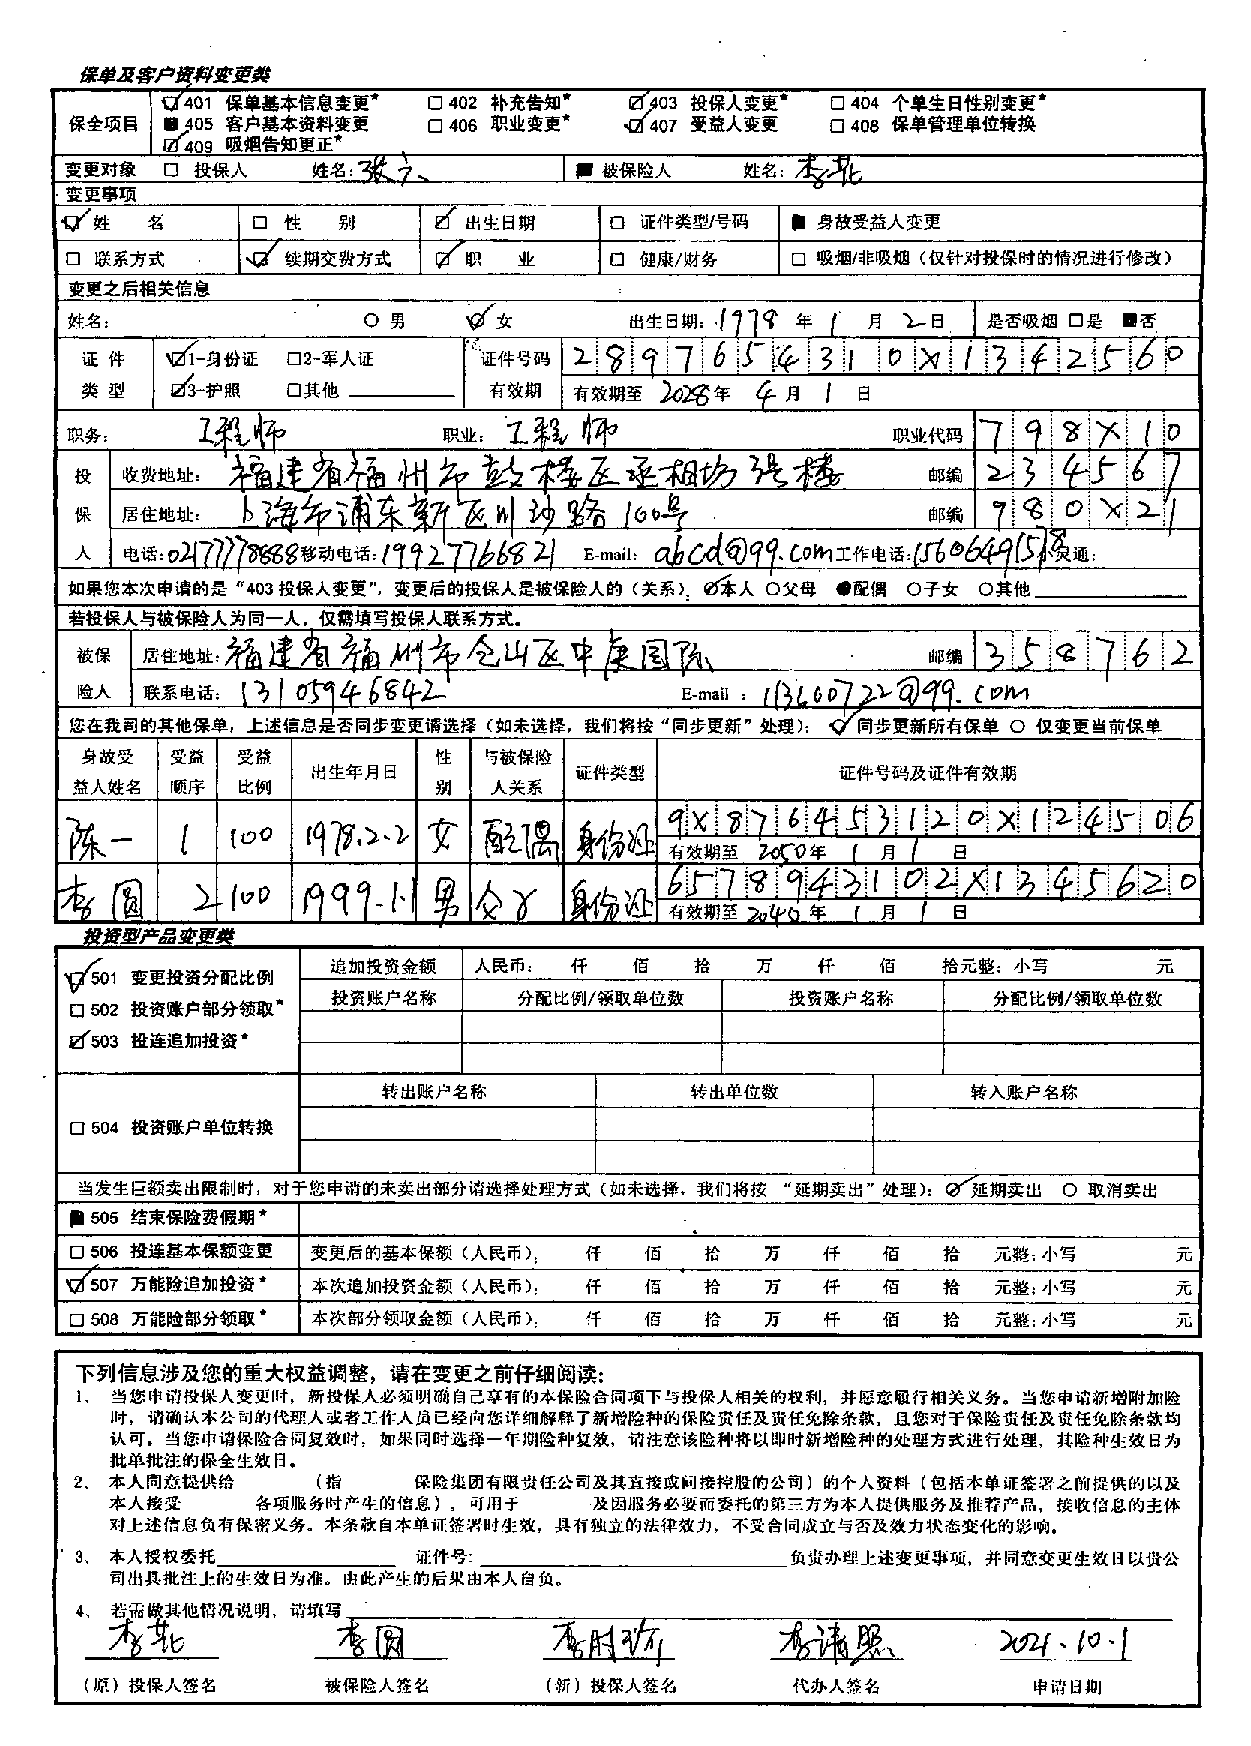 保单及客户资料变更类
保全项目 ☑401 保单基本信息变更* □402 补充告知* ☑403 投保人变更* □404 个单生日性别变更*
■405 客户基本资料变更 □406 职业变更* ☑407 受益人变更 □408 保单管理单位转换
☑409 吸烟告知更正*
变更对象 □ 投保人 姓名:张六 ■ 被保险人 姓名:李花
变更事项
☑姓 名 □ 性 别 ☑ 出生日期 □ 证件类型/号码 ■ 身故受益人变更
□ 联系方式 ☑ 续期交费方式 ☑ 职 业 □ 健康/财务 □ 吸烟/非吸烟(仅针对投保时的情况进行修改)
变更之后相关信息
姓名: ○ 男 ☑ 女 出生日期:1978 年 1 月 2 日 是否吸烟 □是 ■否
证件类型 ☑1-身份证 □2-军人证 证件号码 2897654310X1342560
☑3-护照 □其他 有效期 有效期至 2028年 4 月 1 日
职务: 工程师 职业: 工程师 职业代码 798X10
投 收费地址: 福建省福州市鼓楼区丞相坊3号楼 邮编 234567
保 居住地址: 上海市浦东新区川沙路100号 邮编 980X21
人 电话:02177778888 移动电话:19927766821 E-mail: abcd@99.com 工作电话:15606491578 灵通:
如果您本次申请的是“403 投保人变更”,变更后的投保人是被保险人的(关系): ☑本人 ○父母 ●配偶 ○子女 ○其他
若投保人与被保险人为同一人,仅需填写投保人联系方式。
被保 居住地址:福建省福州市仓山区中庚国际 邮编 358762
险人 联系电话: 13105946842 E-mail : 113660722@99.com
您在我司的其他保单,上述信息是否同步变更请选择(如未选择,我们将按“同步更新”处理): ☑ 同步更新所有保单 ○ 仅变更当前保单
身故受益人姓名 受益顺序 受益比例 出生年月日 性别 与被保险人关系 证件类型 证件号码及证件有效期
陈一 1 100 1978.2.2 女 配偶 身份证 9X876453120X124506
有效期至 2050年 1 月 1 日
李圆 2 100 1999.1.1 男 父子 身份证 6578943102X1345620
有效期至 2040 年 1 月 1 日
投资型产品变更类
☑501 变更投资分配比例 追加投资金额 人民币: 仟 佰 拾 万 仟 佰 拾元整: 小写 元
□502 投资账户部分领取* 投资账户名称 分配比例/领取单位数 投资账户名称 分配比例/领取单位数
☑503 投连追加投资*
转出账户名称 转出单位数 转入账户名称
□504 投资账户单位转换
当发生巨额卖出限制时,对于您申请的未卖出部分请选择处理方式(如未选择,我们将按 “延期卖出” 处理): ☑延期卖出 ○ 取消卖出
■505 结束保险费假期*
□506 投连基本保额变更 变更后的基本保额(人民币): 仟 佰 拾 万 仟 佰 拾 元整: 小写 元
☑507 万能险追加投资* 本次追加投资金额(人民币): 仟 佰 拾 万 仟 佰 拾 元整: 小写 元
□508 万能险部分领取* 本次部分领取金额(人民币): 仟 佰 拾 万 仟 佰 拾 元整: 小写 元
下列信息涉及您的重大权益调整,请在变更之前仔细阅读:
1、 当您申请投保人变更时,新投保人必须明确自己享有的本保险合同项下与投保人相关的权利,并愿意履行相关义务。当您申请新增附加险
时,请确认本公司的代理人或者工作人员已经向您详细解释了新增险种的保险责任及责任免除条款,且您对于保险责任及责任免除条款均
认可。当您申请保险合同复效时,如果同时选择一年期险种复效,请注意该险种将以即时新增险种的处理方式进行处理,其险种生效日为
批单批注的保全生效日。
2、 本人同意提供给 (指 保险集团有限责任公司及其直接或间接控股的公司)的个人资料(包括本单证签署之前提供的以及
本人接受 各项服务时产生的信息),可用于 及因服务必要而委托的第三方为本人提供服务及推荐产品,接收信息的主体
对上述信息负有保密义务。本条款自本单证签署时生效,具有独立的法律效力,不受合同成立与否及效力状态变化的影响。
3、 本人授权委托 证件号: 负责办理上述变更事项,并同意变更生效日以贵公
司出具批注上的生效日为准。由此产生的后果由本人自负。
4、 若需做其他情况说明,请填写
李花 李圆 李时珍 李清照 2021.10.1
(原)投保人签名 被保险人签名 (新)投保人签名 代办人签名 申请日期